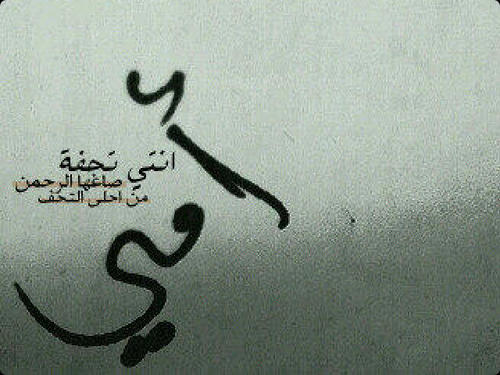 أمي
انتي تحفة
صاغها الرحمن
من احلى التحف